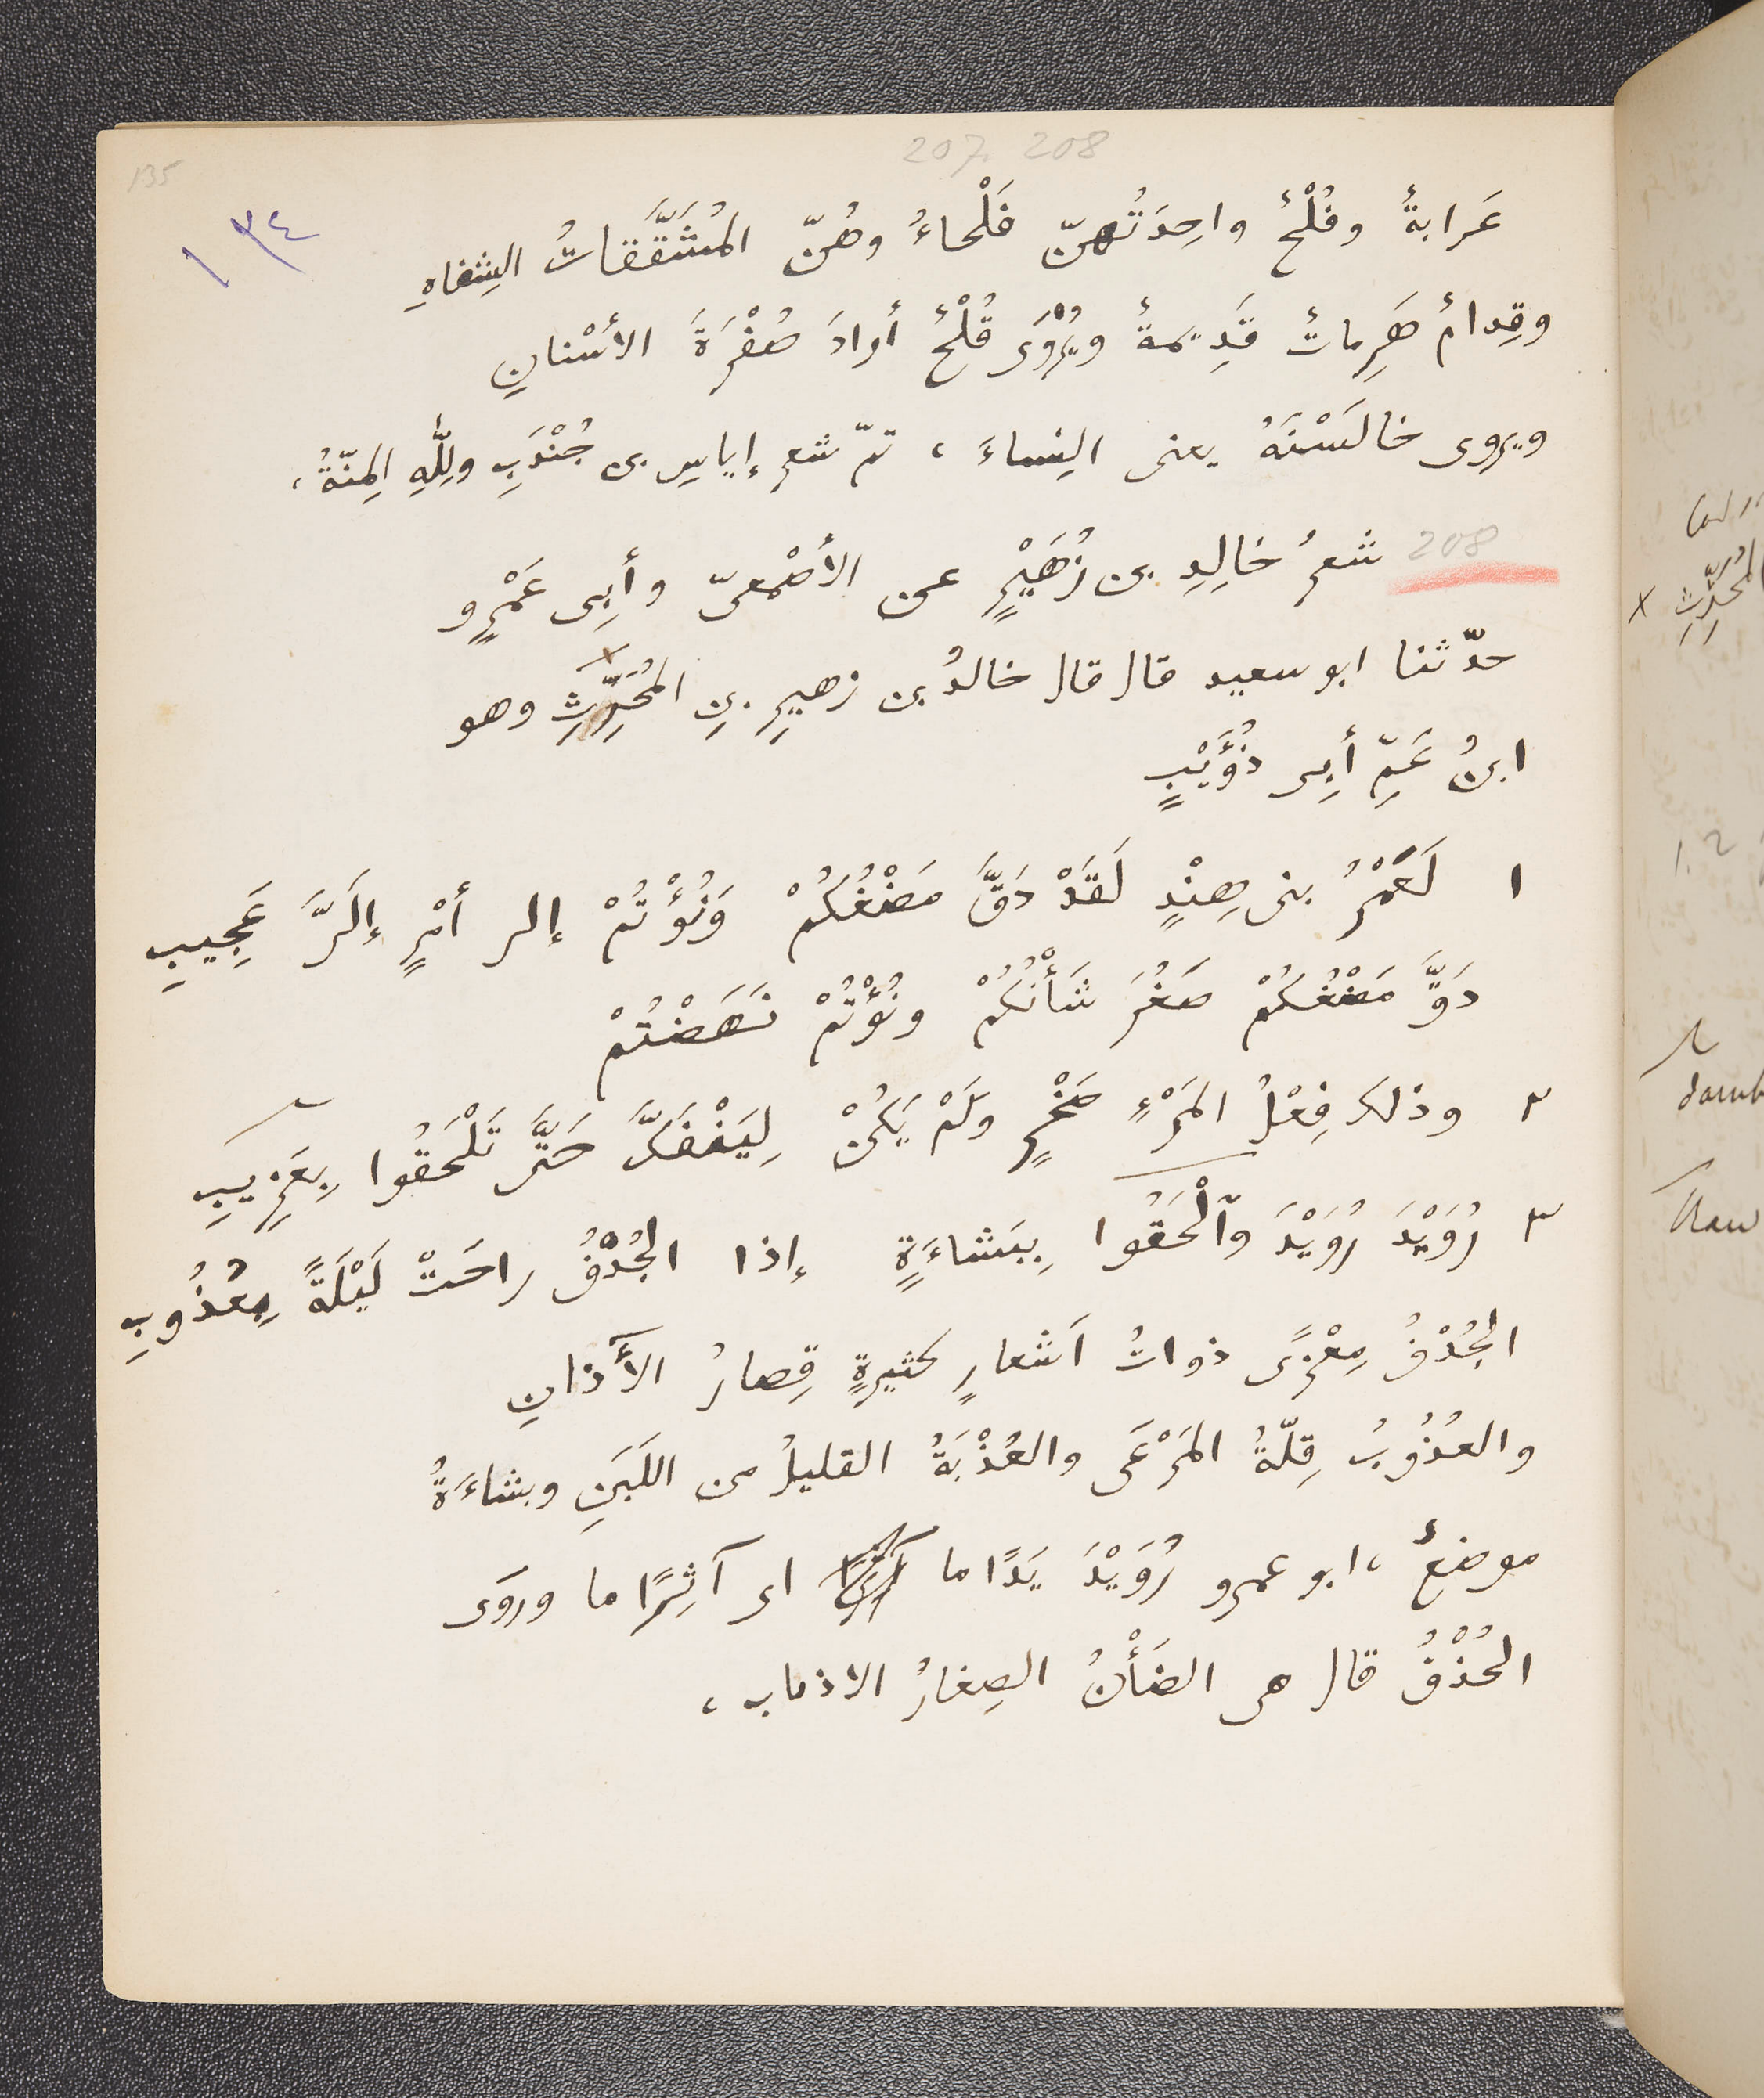 207. 208
135
١٣٤
عَرابةٌ وفُلْحٌ واحِدَتُهنّ فَلْحاءُ وهُنّ المُشَقَّقاتُ الشِفاهِ
وقِدامٌ هَرِماتٌ قَدِيمةٌ ويُرْوَى قُلْحٌ أرادَ صُفْرَةَ الأسْنانِ
ويروى خالَسْنَهُ يعنى النِساءَ، تمّ شعر إياسِ بن جُنْدَبٍ ولِلّٰهِ المِنّةُ،
208 شعرُ خالِدِ بن زُهَيْرٍ عن الأصْمعىّ وأبِى عَمْرٍو
حدّثنا ابو سعيد قال قال خالدُ بن زهيرِ بنِ المُحَرِّثِ x وهو
ابنُ عَمِّ أبِى ذُؤَيْبٍ
١ لَعَمْرُ بنى هِنْدٍ لَقَدْ دَقَّ مَضْغُكُمْ وَنُؤْتُمْ إلى أمْرٍ إلَىَّ عَجِيبِ
دَقَّ مَضْغُكُمْ صَغُرَ شَأْنُكُمْ ونُؤْتُمْ نَهَضْتُمْ
٢ وذلك فِعْلُ المَرْءِ صَخْرٍ ولَمْ يَكُنْ لِيَنْفَكَّ حَتَّى تَلْحَقُوا بِغَرِيبِ
٣ رُوَيْدَ رُوَيْدَ وٱلْحَقُوا بِبَشاءَةٍ إذا الجُدْفُ راحَتْ لَيْلَةً بِعُذُوبِ
الجُدْفُ مِعْزًى ذواتُ اَشعارٍ كثيرةٍ قِصارُ الأَذانِ
والعُذُوبُ قِلّةُ المَرْعَى والعُذْبَةُ القليلُ من اللَبَنِ وبشاءَةُ
موضعٌ، ابو عمرو رُوَيْدَ يَدًا ما اى آثِرًا ما وروَى
الحُذْفُ قال هى الضَأْنُ الصِغارُ الاذناب،
x المُحَرِّثِ